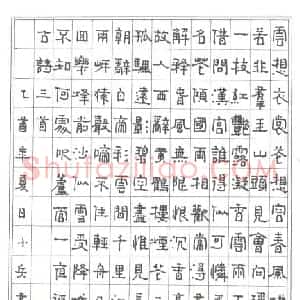 雲想衣裳花想容春風
若非羣玉山頭見會
一枝紅艷露凝香雲雨
借問漢宮誰得似可憐
名花傾國兩相歡常得
解釋春風無限恨沉香
故人西辭黃鶴樓煙花
孤帆遠影碧空盡
朝辭白帝彩雲間千里
兩岸猿聲啼不住輕舟
回樂峰前沙似雪受降
不知何處吹蘆管一夜
古詩 乙酉年夏日小兵書
Shufaziliao.COM